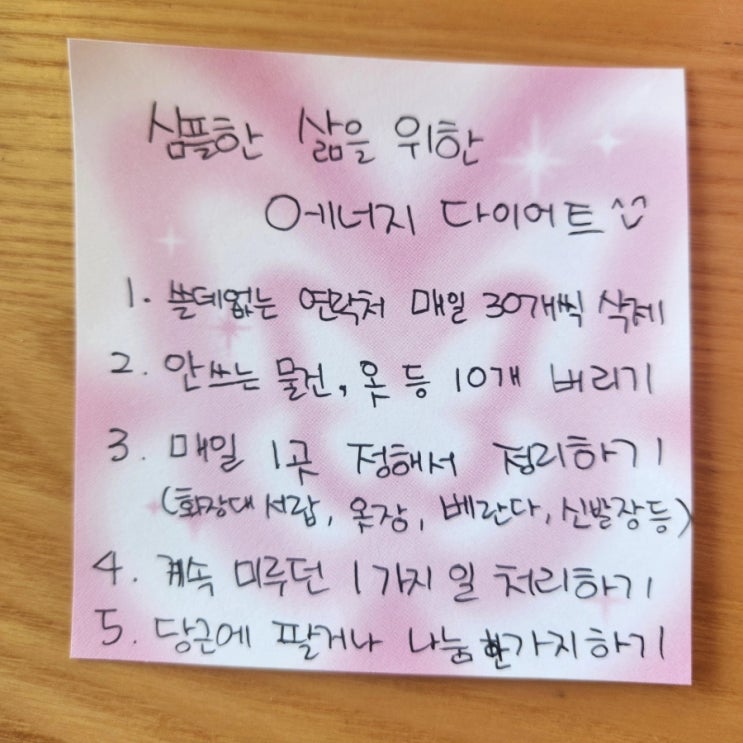 심플한 삶을 위한
에너지 다이어트^^
1. 쓸데없는 연락처 매일 30개씩 삭제
2. 안쓰는 물건, 옷 등 10개 버리기
3. 매일 1곳 정해서 정리하기
(화장대 서랍, 옷장, 베란다, 신발장등)
4. 계속 미루던 1가지 일 처리하기
5. 당근에 팔거나 나눔 한가지하기